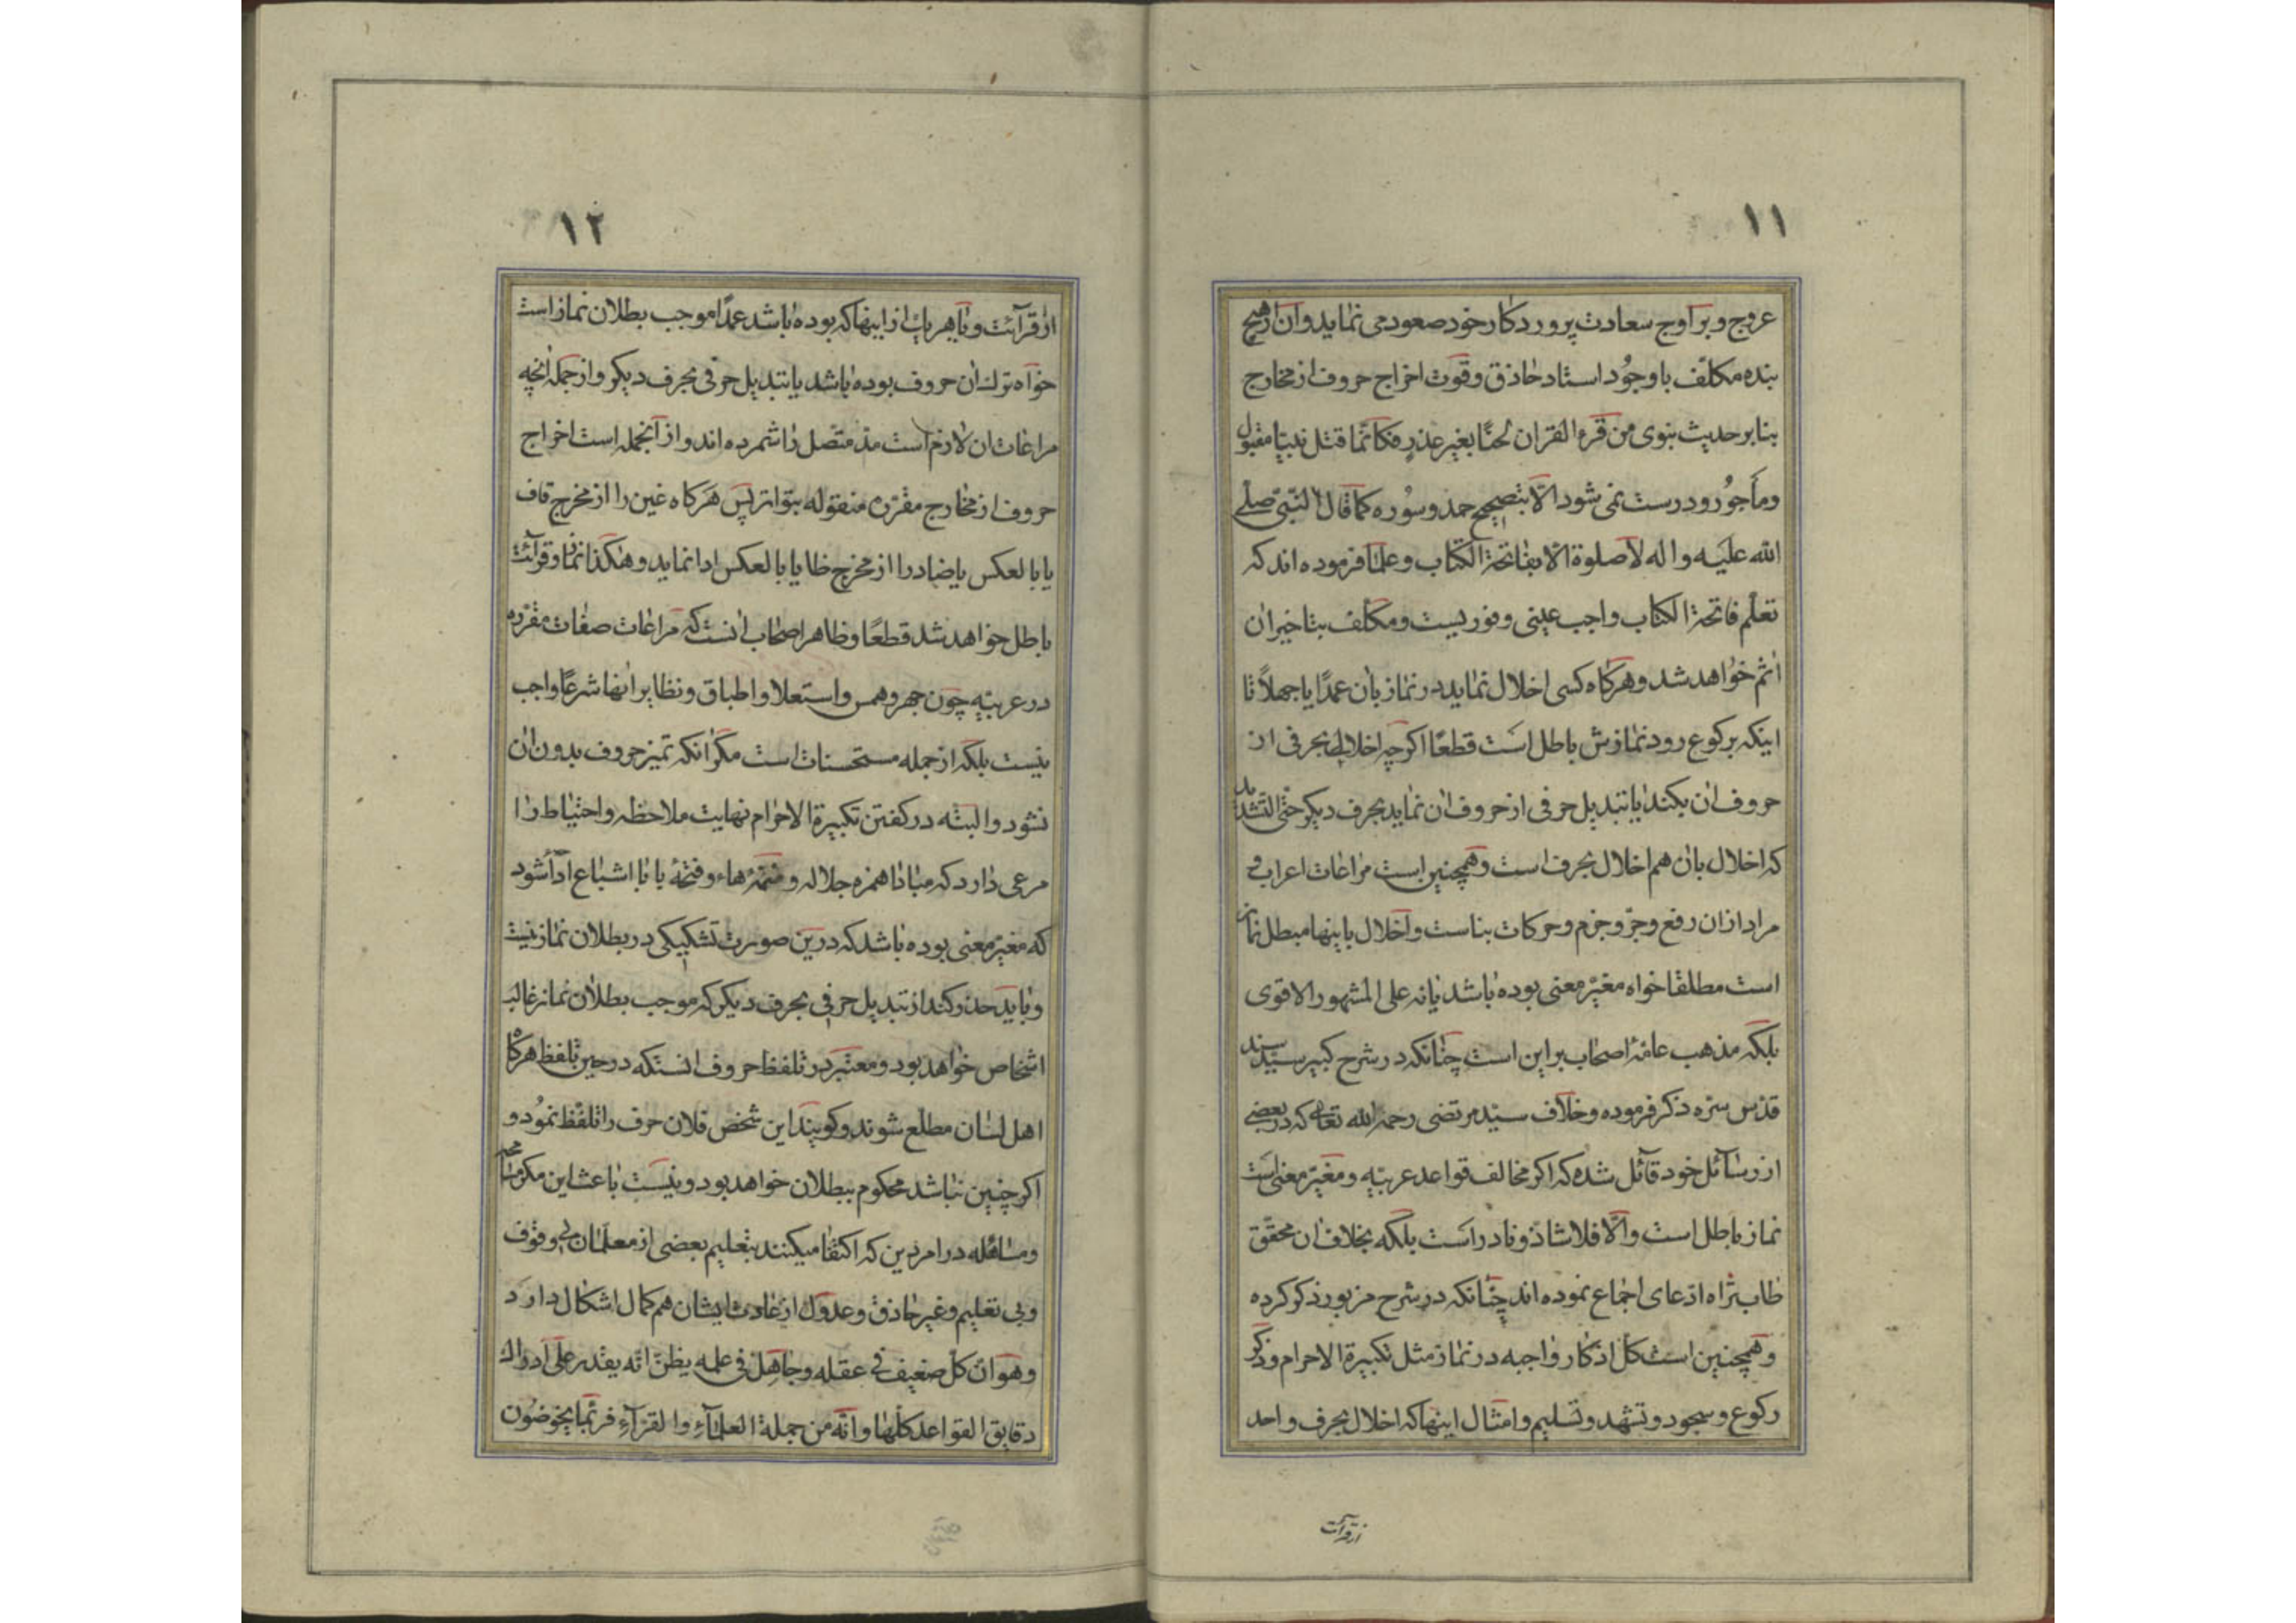 ١١
عروج و بر اوج سعادت پروردکار خود صعود می نماید و ان از هیچ
بنده مکلّف با وجُود استاد حاذق و قوت اخراج حروف از مخارج
بنا بر حدیث نبوی من قرء القران لحنًا بغیر عذرٍ فکانّما قتل نبیّا مقبول
و مأجُور و درست نمی شود الّا بتصحیح حمد و سُوره کما قال النّبیّ صلّی
الله علیَه و اله لا صلوة الّا بفاتحة الکتاب و علما فرموده اند که
تعلّم فاتحة الکتاب واجب عینی و فوریست و مکلّف بتاخیر ان
اثم خواهد شد و هرکاه کسی اخلال نماید در نماز بان عمدًا یا جهلاً تا
اینکه برکوع رود نمازش باطل است قطعًا اکرچه اخلال بحرفی از
حروف ان بکند یا بتبدیل حرفی از حروف ان نماید بحرف دیکر حتّی التّشدید
که اخلال بان هم اخلال بحرف است و همچنین است مراعات اعراب و
مراد از ان رفع و جرّ و جزم و حرکات بناست و اخلال باینها مبطل نماز
است مطلقا خواه مغیّر معنی بوده باشد یا نه علی المشهور الاقوی
بلکه مذهب عامّهٔ اصحاب بر این است چنانکه در شرح کبیر سیّد سند
قدّس سرّه ذکر فرموده و خلاف سیّد مرتضی رحمه الله تعالی که در بعضی
از رسائل خود قائل شده که اکر مخالف قواعد عربیّه و مغیّر معنی است
نماز باطل است و الّا فلا شاذ و نادر است بلکه بخلاف ان محقّق
طاب ثراه ادّعای اجماع نموده اند چنانکه در شرح مزبور ذکر کرده
و همچنین است کل اذکار واجبه در نماز مثل تکبیرة الاحرام و ذکر
رکوع و سجود و تشهد و تسلیم و امثال اینها که اخلال بحرف واحد
از قرآئت
١٢
از قرآئت و یا هر یک از اینها که بوده باشد عمدًا موجب بطلان نماز است
خواه ترک ان حروف بوده باشد یا تبدیل حرفی بحرف دیکر و از جمله انچه
مراعات ان لازم است مد متصل را شمرده اند و از آنجمله است اخراج
حروف از مخارج مقرّره منقوله بتواتر پس هرکاه غین را از مخرج قاف
یا بالعکس یا ضاد را از مخرج ظا یا بالعکس ادا نماید و هکذا نماز و قرآئت
باطل خواهد شد قطعًا و ظاهر اصحاب انست که مراعات صفات مقرّره
در عربیّه چون جهر و همس و استعلا و اطباق و نظایر انها شرعًا واجب
نیست بلکه از جمله مستحسنات است مکر انکه تمیز حروف بدون ان
نشود و البته در کفتن تکبیرة الاحرام نهایت ملاحظه و احتیاط را
مرعی دارد که مبادا همزه جلاله و ضمّهٔ هاء و فتحهٔ با با اشباع ادا شود
که مغیّر معنی بوده باشد که درین صورت تشکیکی در بطلان نماز نیست
و باید حذر کند از تبدیل حرفی بحرف دیکر که موجب بطلان نماز غالب
اشخاص خواهد بود و معتبر در تلفظ حروف انستکه در حین تلفظ هرکاه
اهل لسان مطلع شوند و کویند این شخص فلان حرف را تلفّظ نمُود و
اکر چنین نباشد محکوم ببطلان خواهد بود و نیست باعث این مکر مسامحه
و مساهله در امر دین که اکتفا میکنند بتعلیم بعضی از معلمان بی وقوف
و بی تعلیم و غیر حاذق و عدول از عادت ایشان هم کمال اشکال دارد
و هو ان کل ضعیف فی عقله و جاهل فی علمه یظنّ انّه یقدر علی ادراک
دقایق القواعد کلّها و انّه من جملة العلمآءِ و القرّآءِ فربّما یخوضون